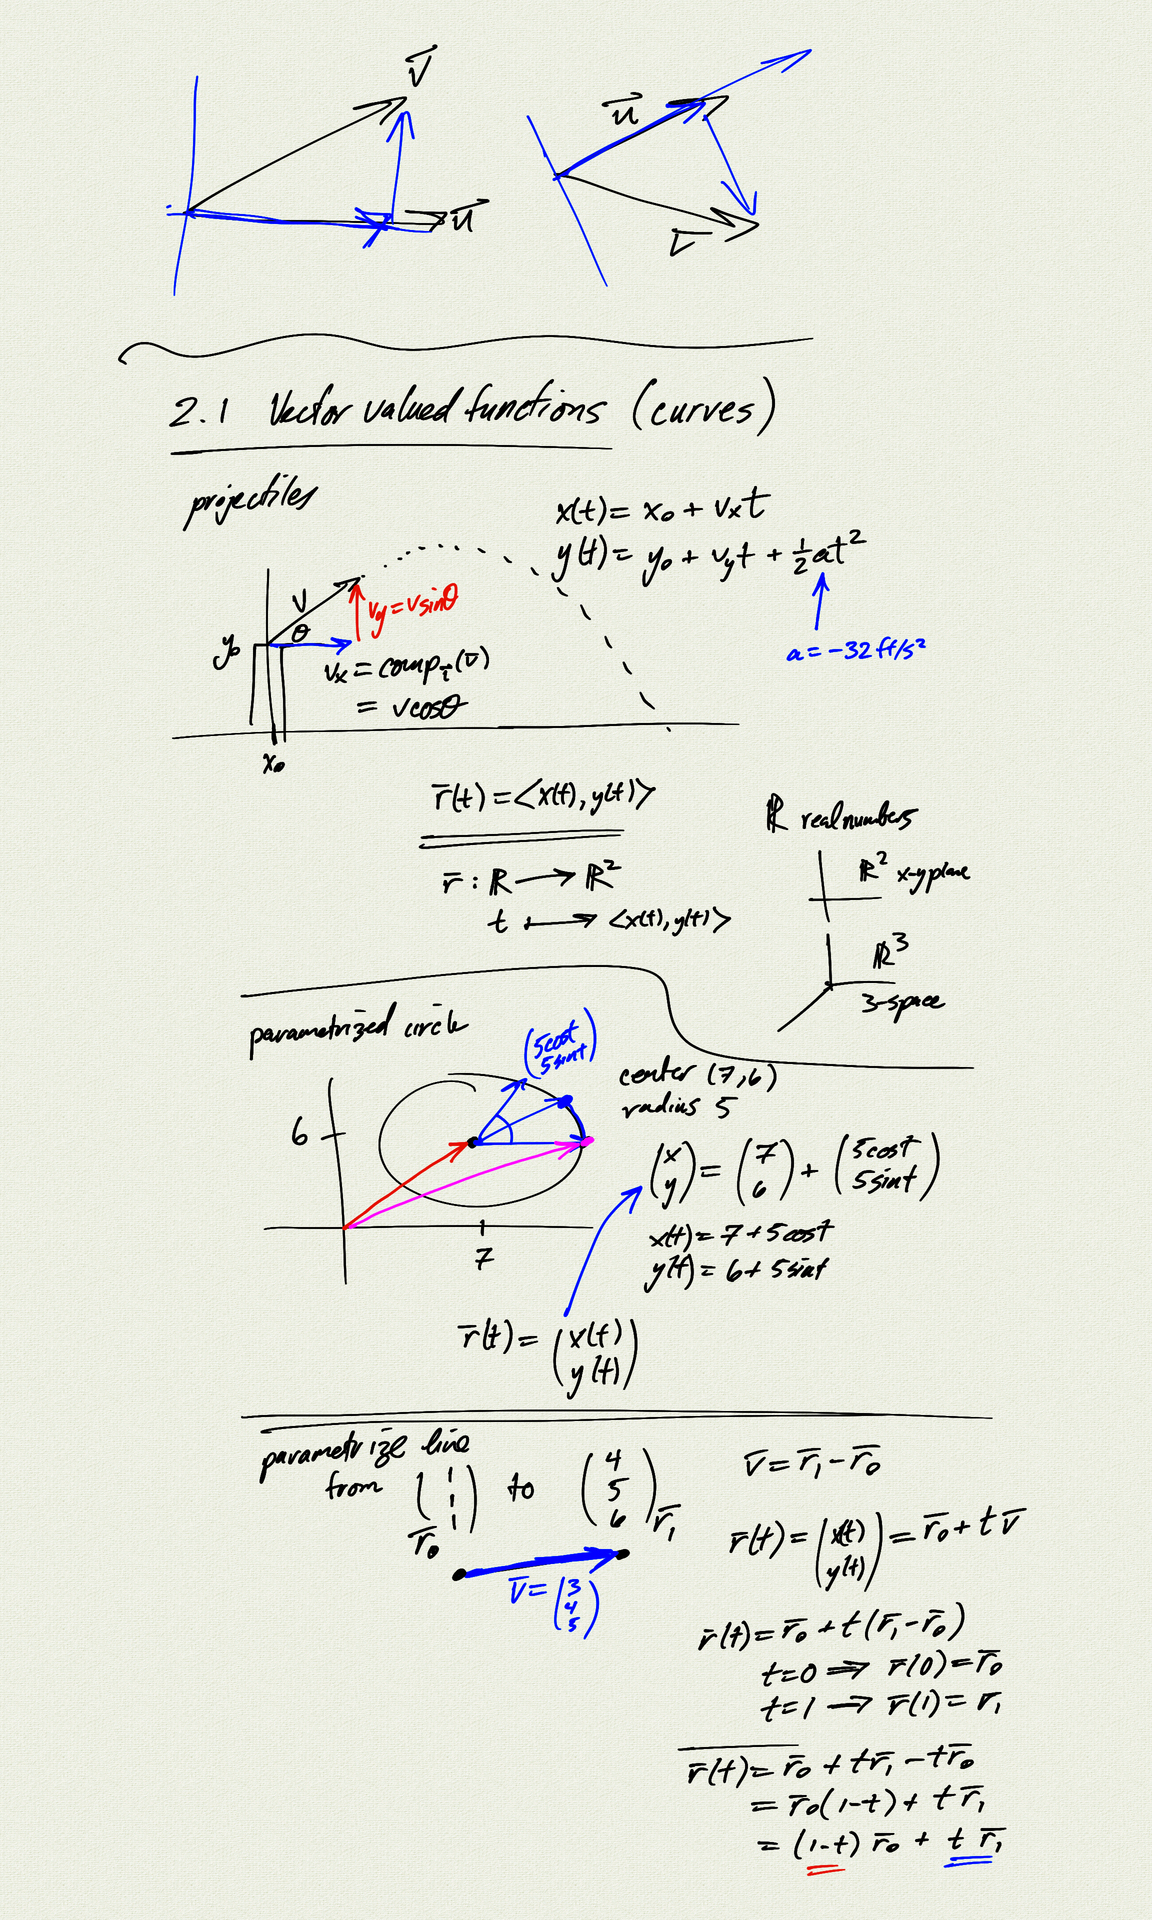 v̅
u̅
u̅
v̅
2.1 Vector valued functions (curves)
projectiles
x(t) = x₀ + vₓt
y(t) = y₀ + v_y t + ½at²
a = -32 ft/s²
v
θ
v_y = v sinθ
y₀
vₓ = comp_i̅(v̅)
= v cosθ
x₀
r̅(t) = <x(t), y(t)>
r̅ : ℝ → ℝ²
t ↦ <x(t), y(t)>
ℝ real numbers
ℝ² x-y plane
ℝ³
3-space
parametrized circle
(5cost
5sint)
6
7
center (7,6)
radius 5
(x y) = (7 6) + (5cost 5sint)
x(t) = 7 + 5cost
y(t) = 6 + 5sint
r̅(t) = (x(t) y(t))
parametrize line
from (1 1 1) to (4 5 6)
r̅₀
r̅₁
v̅ = (3 4 5)
v̅ = r̅₁ - r̅₀
r̅(t) = (x(t) y(t)) = r̅₀ + t v̅
r̅(t) = r̅₀ + t(r̅₁ - r̅₀)
t=0 ⇒ r̅(0) = r̅₀
t=1 ⇒ r̅(1) = r₁
r̅(t) = r̅₀ + tr̅₁ - tr̅₀
= r̅₀(1-t) + t r̅₁
= (1-t) r̅₀ + t r̅₁